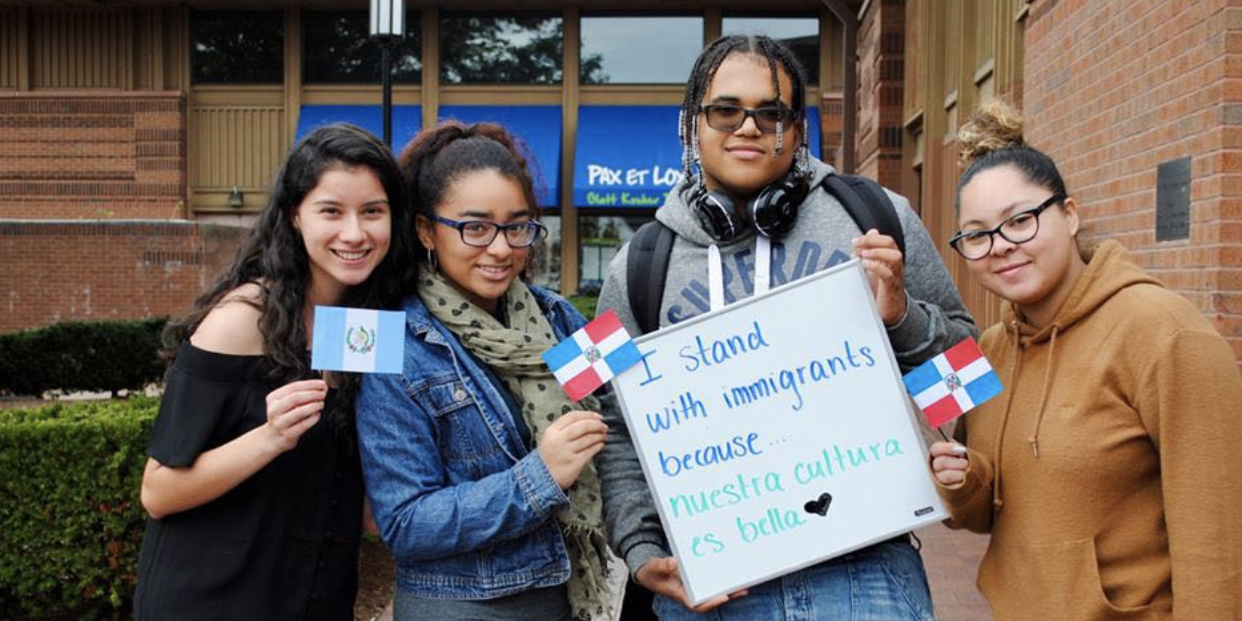 PAX ET LOX
Glatt Kosher
SUPERD
I stand
with immigrants
because...
nuestra cultura
es bella